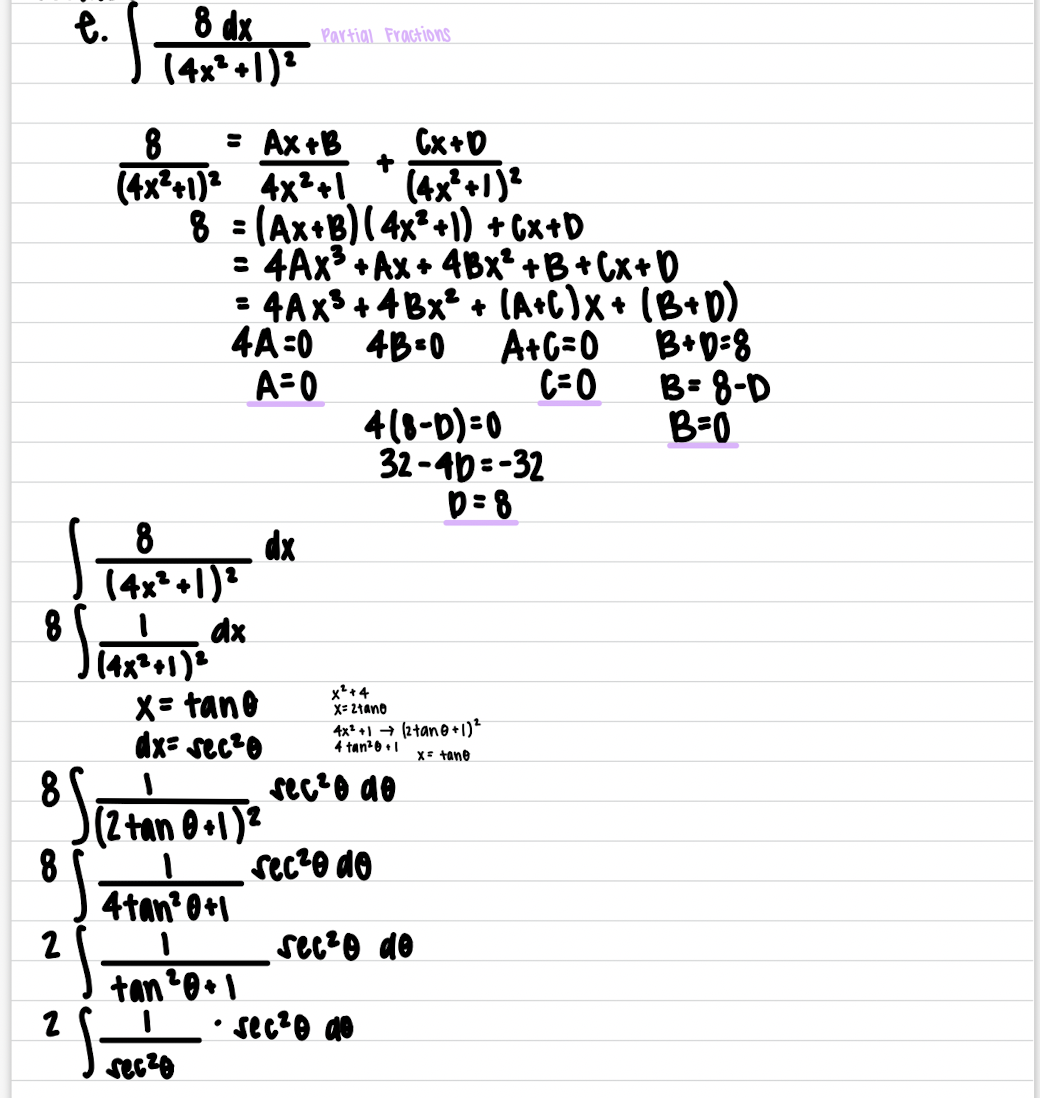 e. ∫ 8 dx / (4x²+1)² Partial Fractions
8 / (4x²+1)² = Ax+B / 4x²+1 + Cx+D / (4x²+1)²
8 = (Ax+B)(4x²+1) + Cx+D
= 4Ax³ + Ax + 4Bx² + B + Cx + D
= 4Ax³ + 4Bx² + (A+C)x + (B+D)
4A=0 4B=0 A+C=0 B+D=8
A=0 C=0 B= 8-D
4(8-D)=0 B=0
32-4D=-32
D=8
∫ 8 / (4x²+1)² dx
8 ∫ 1 / (4x²+1)² dx
x = tanθ
dx= sec²θ
x²+4
x=2tanθ
4x²+1 → (2tanθ+1)²
4tan²θ+1 x= tanθ
8 ∫ 1 / (2tanθ+1)² sec²θ dθ
8 ∫ 1 / 4tan²θ+1 sec²θ dθ
2 ∫ 1 / tan²θ+1 sec²θ dθ
2 ∫ 1 / sec²θ · sec²θ dθ